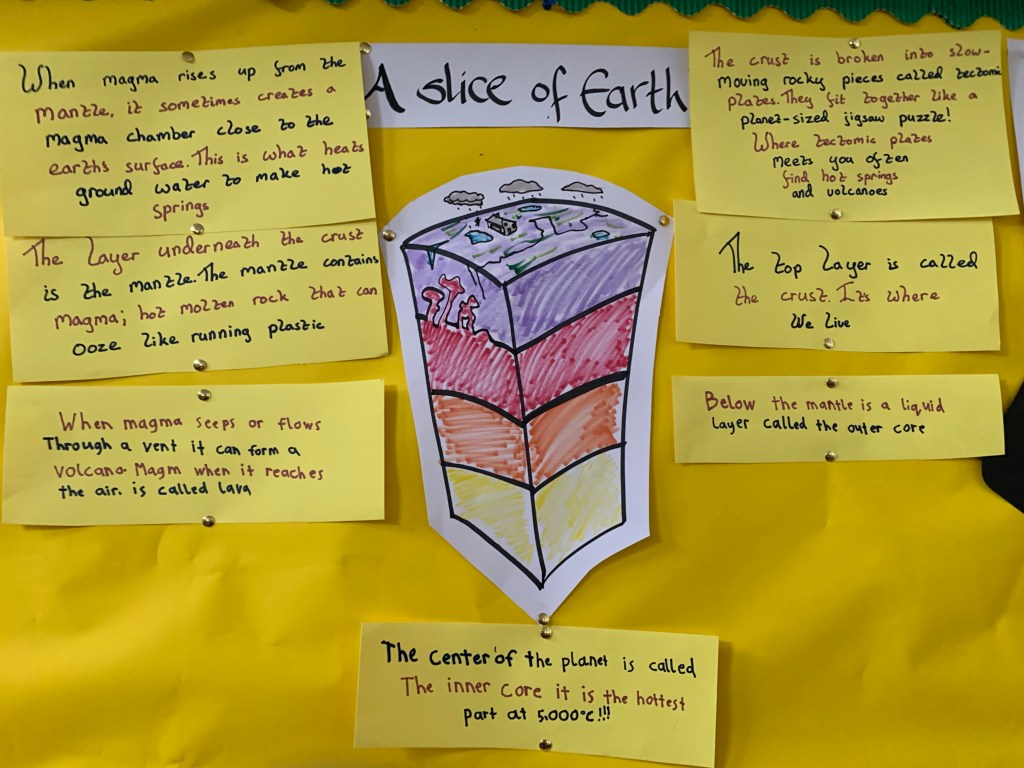 A slice of Earth
When magma rises up from the
mantle, it sometimes creates a
magma chamber close to the
earths surface. This is what heats
ground water to make hot
springs
The Layer underneath the crust
is the mantle. The mantle contains
magma; hot molten rock that can
ooze like running plastic
When magma seeps or flows
Through a vent it can form a
volcano. Magm when it reaches
the air. is called lava
The crust is broken into slow-
moving rocky pieces called tectomic
plates. They fit together like a
planet-sized jigsaw puzzle!
Where tectomic plates
meets you often
find hot springs
and volcanoes
The top Layer is called
the crust. Its where
We live
Below the mantle is a liquid
layer called the outer core
The center of the planet is called
The inner core it is the hottest
part at 5.000°c!!!